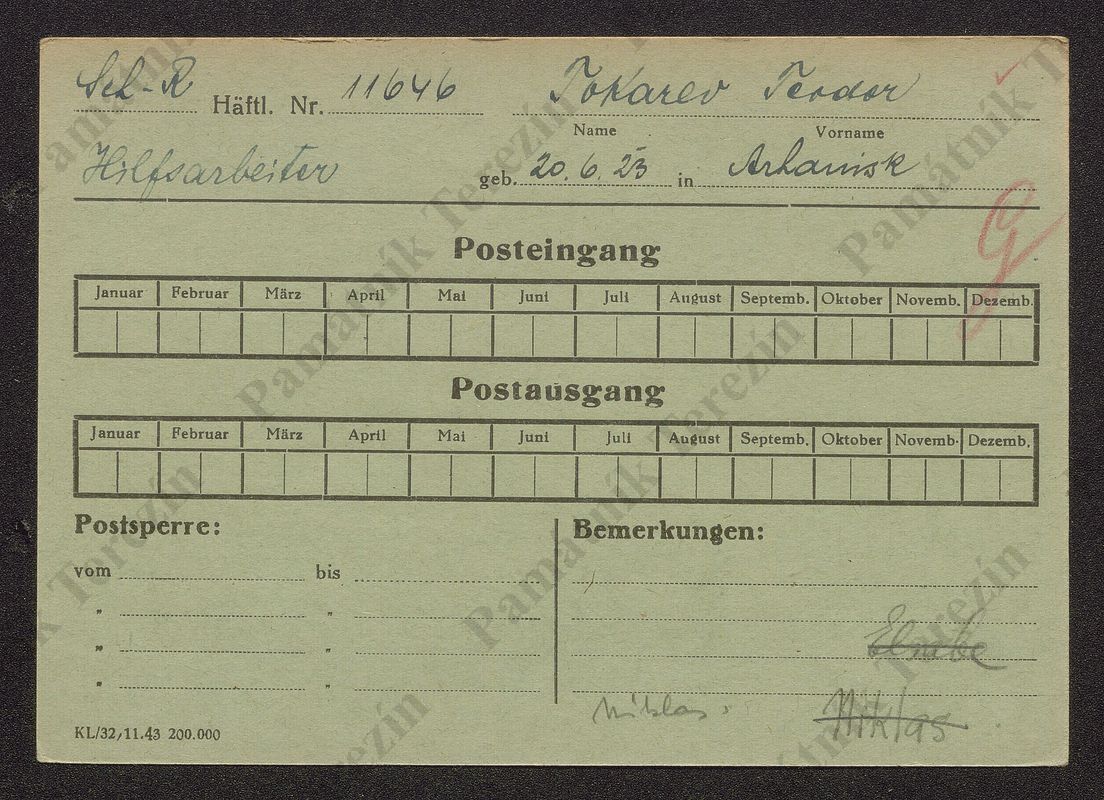 Sch-R Häftl. Nr. 11646 Tokarev Teodor
Name Vorname
Hilfsarbeiter geb. 20.6.23 in Arhanisk
Posteingang
Januar Februar März April Mai Juni Juli August Septemb. Oktober Novemb. Dezemb.
Postausgang
Januar Februar März April Mai Juni Juli August Septemb. Oktober Novemb. Dezemb.
Postsperre: Bemerkungen:
vom bis
" "
" "
" "
Niklas Niklas
KL/32, 11.43 200.000
Památník Terezín